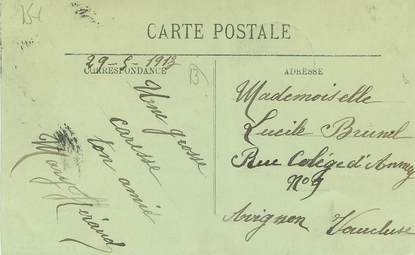 CARTE POSTALE
29-5-1913
CORRESPONDANCE
Une grosse
caresse
ton amie
Mary Héraud
ADRESSE
Mademoiselle
Lucile Brunel
Rue Colège d'Annecy
No 9
Avignon Vaucluse